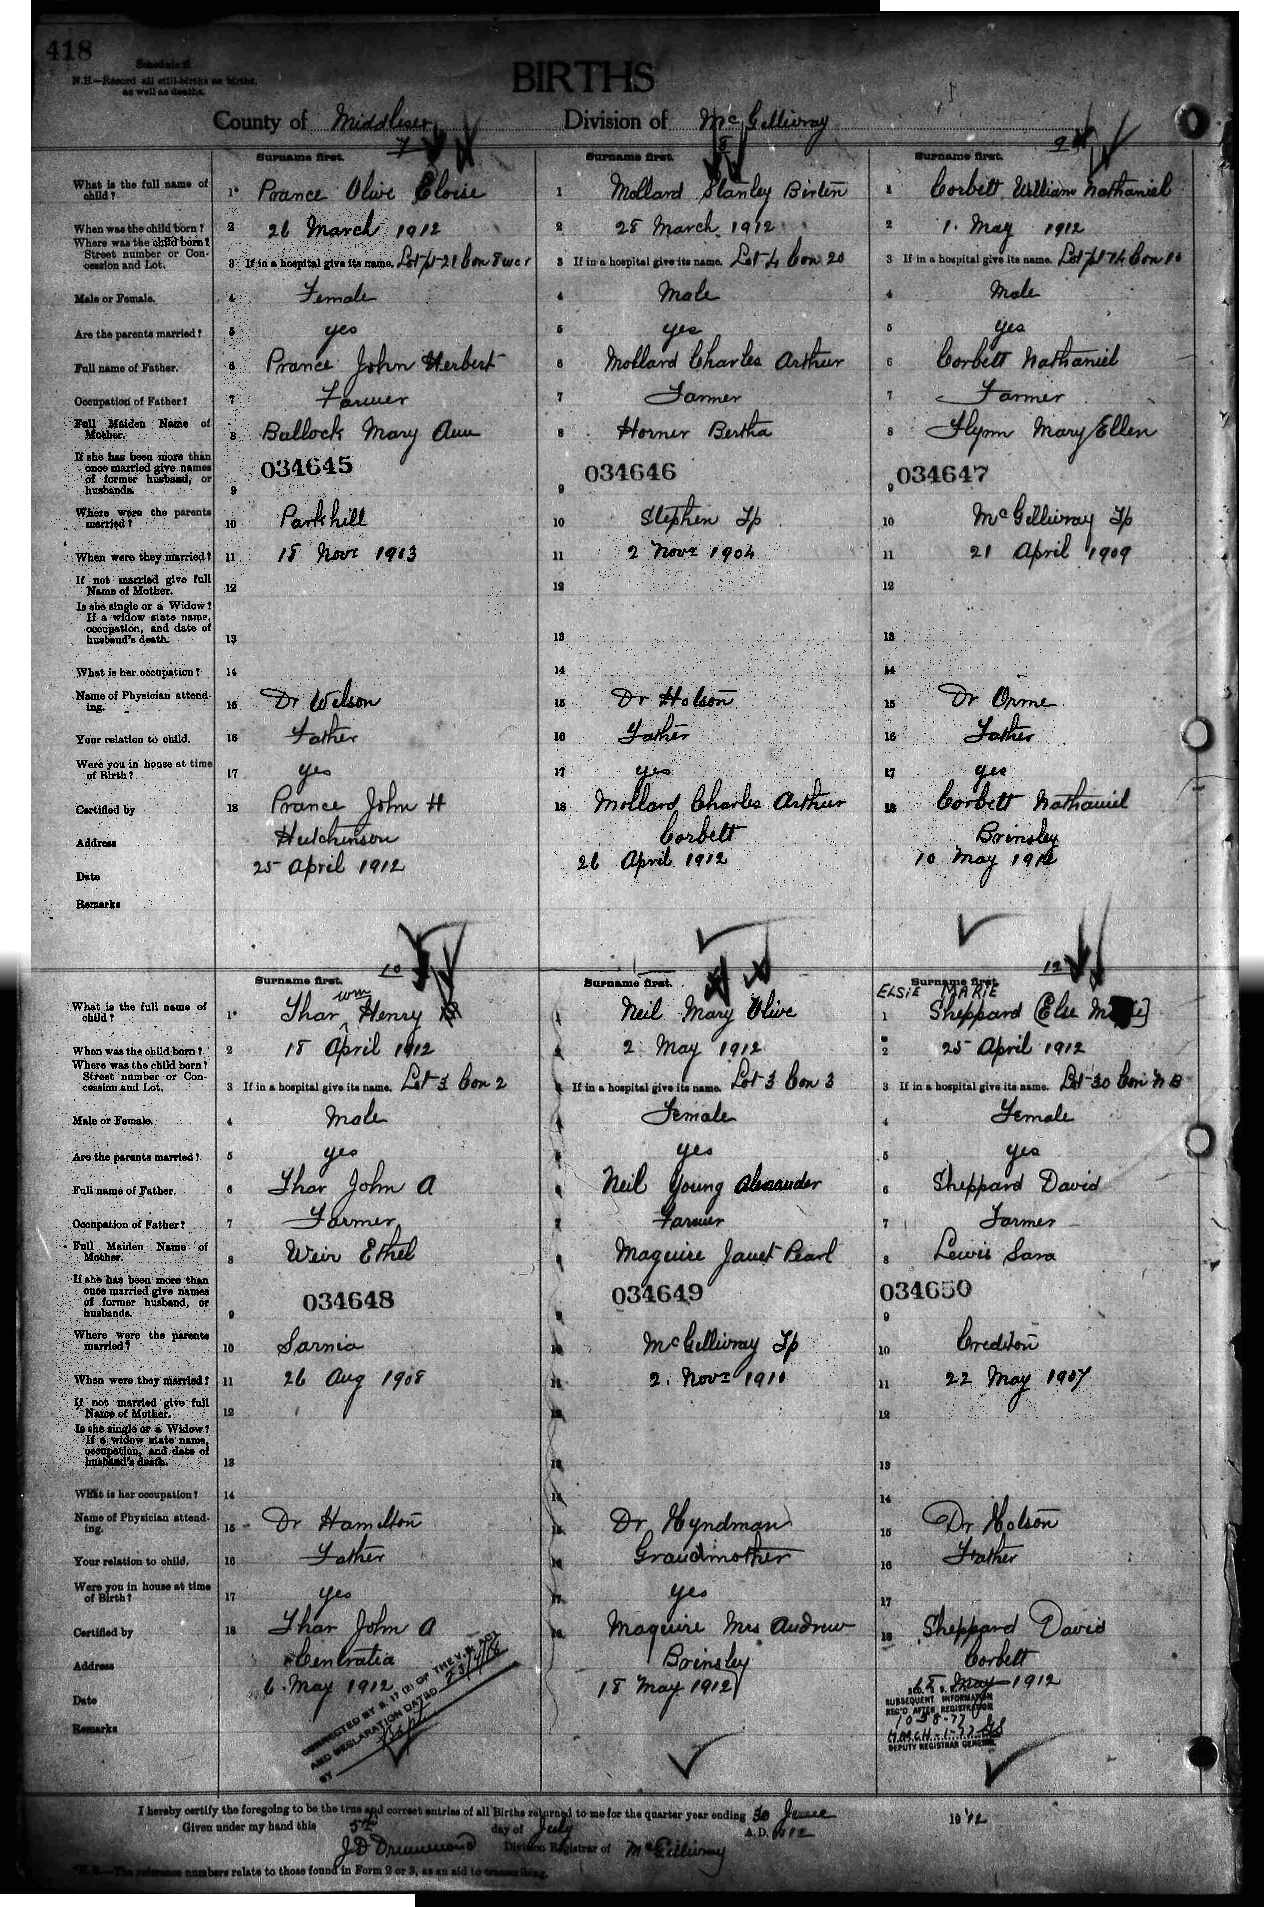 418
Schedule B
N.B.—Record all still-births as births,
as well as deaths.
BIRTHS
County of Middlesex Division of McGillivray
7 8 9
Surname first. Surname first. Surname first.
What is the full name of child? 1 Prance Olive Eloise 1 Mollard Stanley Birten 1 Corbett William Nathaniel
When was the child born? 2 26 March 1912 2 28 March 1912 2 1 May 1912
Where was the child born? Street number or Concession and Lot. 3 If in a hospital give its name. Lot pt 21 Con 8 wcr 3 If in a hospital give its name. Lot 4 Con 20 3 If in a hospital give its name. Lot pt 14 Con 10
Male or Female. 4 Female 4 Male 4 Male
Are the parents married? 5 yes 5 yes 5 yes
Full name of Father. 6 Prance John Herbert 6 Mollard Charles Arthur 6 Corbett Nathaniel
Occupation of Father? 7 Farmer 7 Farmer 7 Farmer
Full Maiden Name of Mother. 8 Bullock Mary Ann 8 Horner Bertha 8 Flynn Mary Ellen
If she has been more than once married give names of former husband, or husbands. 9 034645 9 034646 9 034647
Where were the parents married? 10 Parkhill 10 Stephen Tp 10 McGillivray Tp
When were they married? 11 18 Novr 1903 11 2 Novr 1904 11 21 April 1909
If not married give full Name of Mother. 12 12 12
Is she single or a Widow? If a widow state name, occupation, and date of husband's death. 13 13 13
What is her occupation? 14 14 14
Name of Physician attending. 15 Dr Wilson 15 Dr Holson 15 Dr Orme
Your relation to child. 16 Father 16 Father 16 Father
Were you in house at time of Birth? 17 yes 17 yes 17 yes
Certified by 18 Prance John H 18 Mollard Charles Arthur 18 Corbett Nathaniel
Address Hutchinson Corbett Brinsley
Date 25 April 1912 26 April 1912 10 May 1912
Remarks
10 12
Surname first. Surname first. Surname first.
wm ELSIE MARIE
What is the full name of child? 1 Thar Henry 1 Neil Mary Olive 1 Sheppard (Else
When was the child born? 2 18 April 1912 2 2 May 1912 2 25 April 1912
Where was the child born? Street number or Concession and Lot. 3 If in a hospital give its name. Lot 3 Con 2 If in a hospital give its name. Lot 3 Con 3 3 If in a hospital give its name. Lot 30 Con N B
Male or Female. 4 Male Female 4 Female
Are the parents married? 5 yes yes 5 yes
Full name of Father. 6 Thar John A Neil Young Alexander 6 Sheppard David
Occupation of Father? 7 Farmer 7 Farmer 7 Farmer
Full Maiden Name of Mother. 8 Weir Ethel Maguire Janet Pearl 8 Lewis Sara
If she has been more than once married give names of former husband, or husbands. 9 034648 034649 9 034650
Where were the parents married? 10 Sarnia 10 McGillivray Tp 10 Crediton
When were they married? 11 26 Aug 1908 11 2 Novr 1910 11 22 May 1907
If not married give full Name of Mother. 12 12 12
Is she single or a Widow? If a widow state name, occupation, and date of husband's death. 13 13 13
What is her occupation? 14 14 14
Name of Physician attending. 15 Dr Hamilton 15 Dr Hyndman 15 Dr Holson
Your relation to child. 16 Father 16 Grandmother 16 Father
Were you in house at time of Birth? 17 yes 17 yes 17
Certified by 18 Thar John A 18 Maguire Mrs Andrew 18 Sheppard David
Address Centralia Brinsley Corbett
Date 6 May 1912 18 May 1912 18 May 1912
Remarks
CORRECTED BY S. 17 (2) OF THE V.S. ACT
AND DECLARATION DATED
BY
SUBSEQUENT INFORMATION
REC'D AFTER REGISTRATION
DEPUTY REGISTRAR GENERAL
I hereby certify the foregoing to be the true and correct entries of all Births returned to me for the quarter year ending 30 June 1912
Given under my hand this 5th day of July A.D. 1912
J D Drummond Division Registrar of McGillivray
N.B.—The reference numbers relate to those found in Form 2 or 3, as an aid to transcribing.